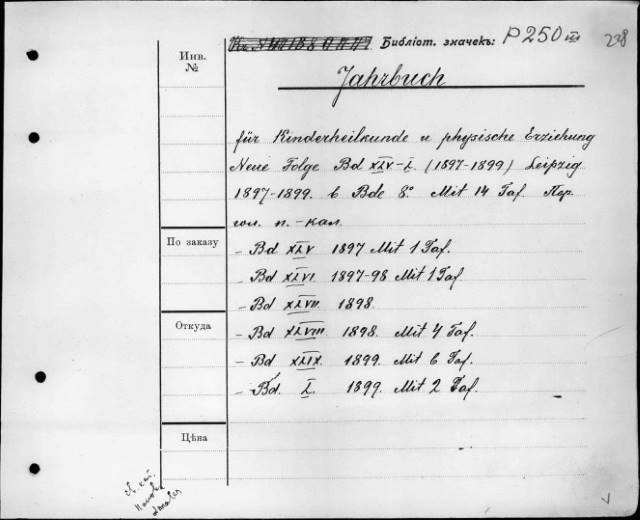 Библіот. значекъ: P 250 III 238
Инв.
№
Jahrbuch
für Kinderheilkunde u physische Erziehung
Neue Folge Bd XLV-L. (1897-1899) Leipzig
1897-1899. 6 Bde 8° Mit 14 Taf. Пер.
п. - кал.
По заказу
- Bd XLV 1897 Mit 1 Taf.
- Bd XLVI. 1897-98 Mit 1 Taf
- Bd XLVII. 1898.
Откуда
- Bd XLVIII. 1898. Mit 4 Taf.
- Bd XLIX. 1899. Mit 6 Taf.
- Bd. L. 1899. Mit 2 Taf.
Цѣна